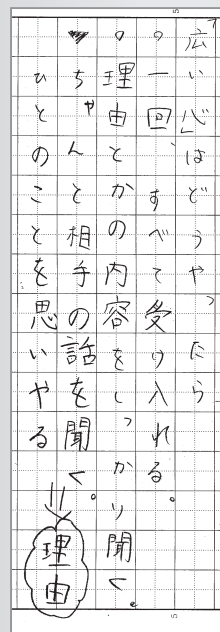 「広い心」はどうやったら
○一回、すべて受け入れる。
○理由とかの内容をしっかり聞く。
ちゃんと相手の話を聞く。
ひとのことを思いやる
理由